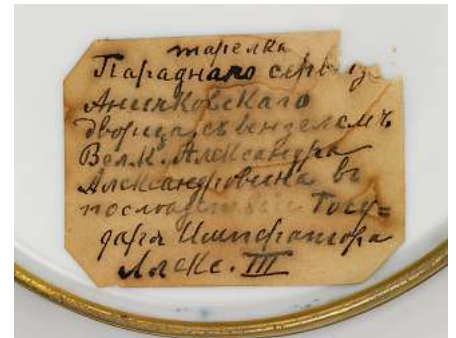 тарелка
Параднаго серв
Аничковскаго
дворца, съ вензелемъ
Велк. Александра
Александровича въ
последствіи Госу=
даря Императора
Алекс. III